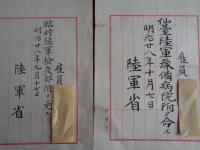 雇員
仙臺陸軍豫備病院附ヲ命ス
明治廿八年十月七日
陸軍省
雇員
臨時陸軍検疫部附ヲ免ス
明治廿八年九月十七日
陸軍省